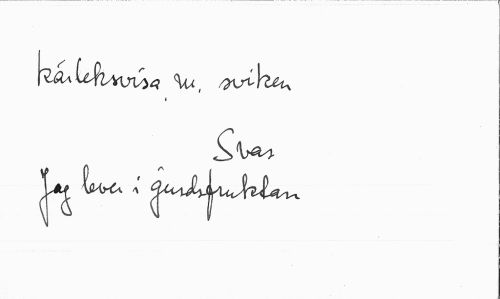 kärleksvisa, m. sviken
Svar
Jag lever i gudsfruktan